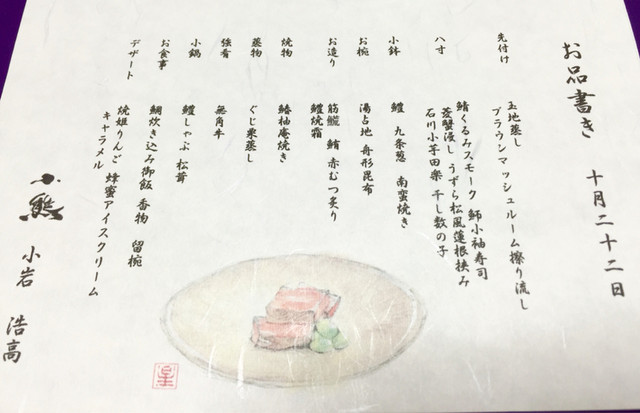 お品書き 十月二十二日
先付け 玉地蒸し
ブラウンマッシュルーム擦り流し
八寸 鯖くるみスモーク 鰤小袖寿司
菱蟹浸し うずら松風蓮根挟み
石川小芋田楽 干し数の子
小鉢 鱧 九条葱 南蛮焼き
お椀 湯占地 舟形昆布
お造り 筋鮑 鮪 赤むつ炙り
鱧焼霜
焼物 鰆柚庵焼き
蒸物 ぐじ栗蒸し
強肴 無角牛
小鍋 鱧しゃぶ 松茸
お食事 鯛炊き込み御飯 香物 留椀
デザート 焼姫りんご 蜂蜜アイスクリーム
キャラメル
小熊 小岩 浩高